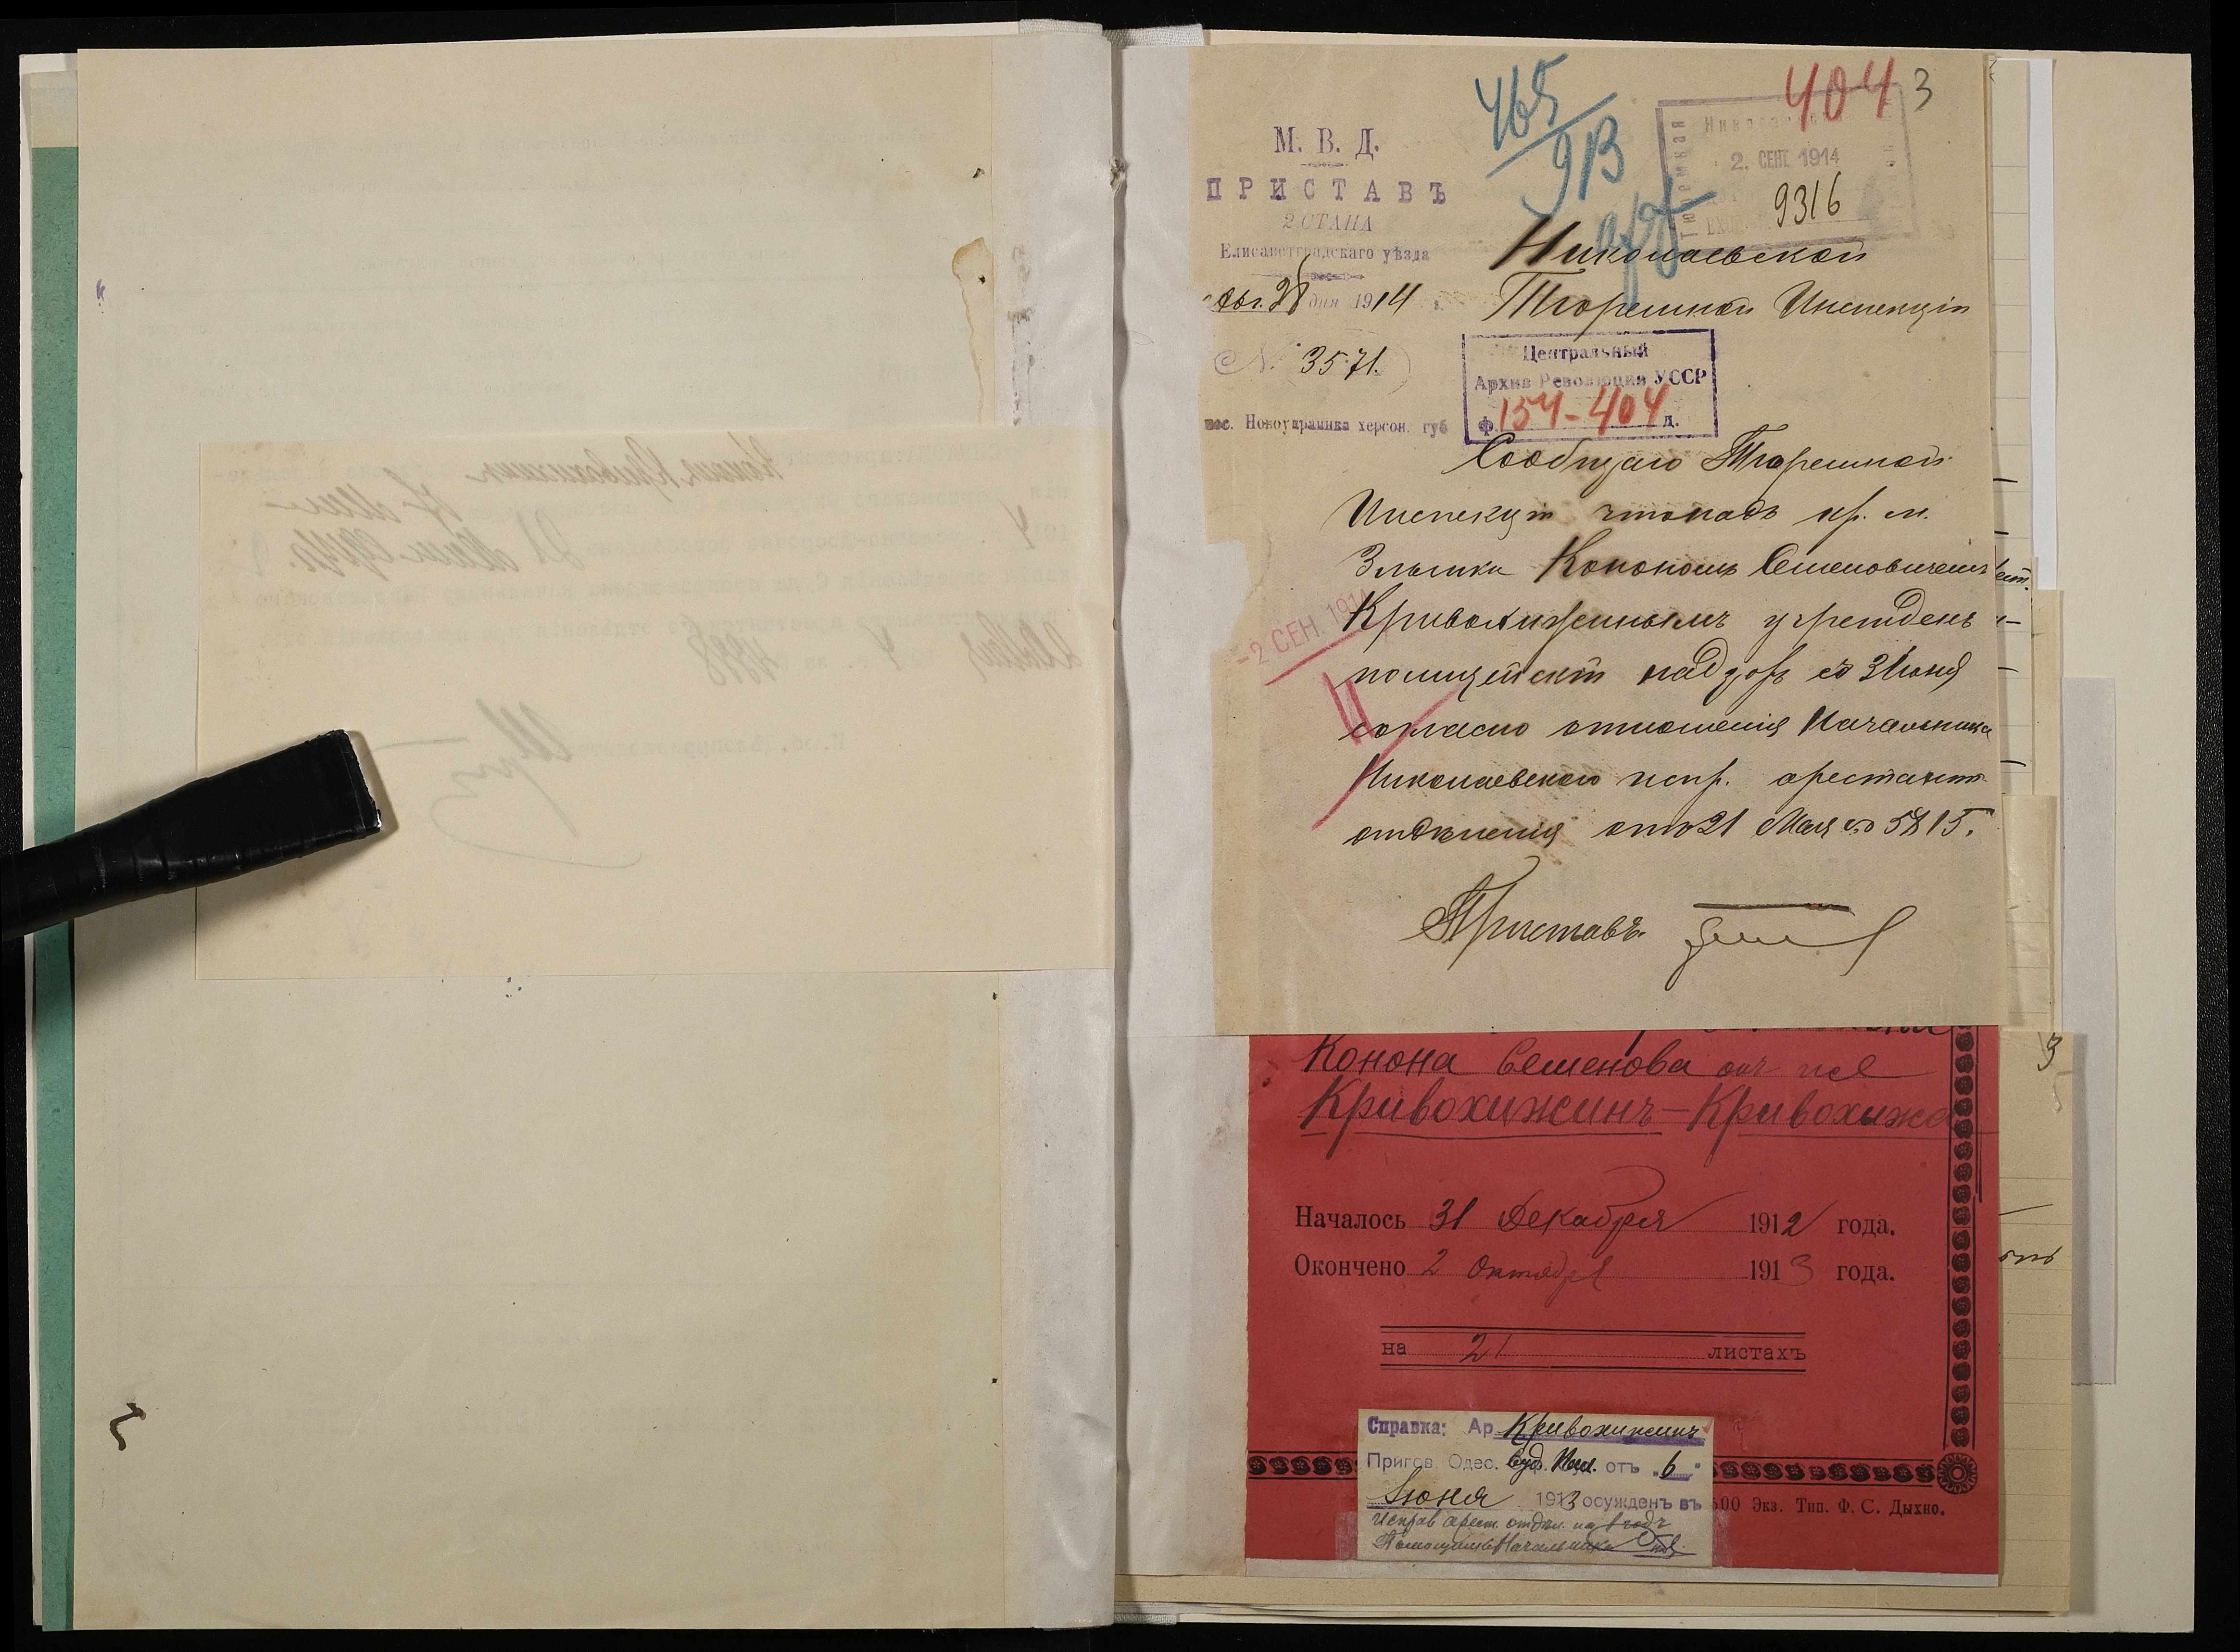 465
9В
404 3
Николаевс
Тюремная
2. СЕНТ. 1914
9316
М. В. Д.
ПРИСТАВЪ
2 СТАНА
Елисаветградскаго уѣзда
Авг. 28 дня 1914
№ 3571.
пос. Новоукраинка херсон. губ
Николаевской
Тюремной Инспекціи
Центральный
Архив Революции УССР
ф. 154-404 д.
Сообщаю Тюремной
Инспекціи что надъ кр. м.
Злынки Кононом Семеновичем
Кривохижинымъ учрежденъ
полицейскій надзоръ съ 3 Іюня
согласно отношенія Начальника
Николаевскаго испр. арестант.
отдѣленія отъ 21 Мая за № 5815.
-2 СЕН. 191
Приставъ
Конона Семенова онъ же
Кривохижинъ-Кривохижа
Началось 31 Декабря 1912 года.
Окончено 2 Октября 1913 года.
на 21 листахъ
Справка: Ар. Кривохижинъ
Пригов. Одес. Суд. Пал. отъ „6"
Іюня 1913 осужденъ въ
Исправ. арест. отдѣл. на 1 годъ
Помощникъ Начальника
500 Экз. Тип. Ф. С. Дыхно.
3